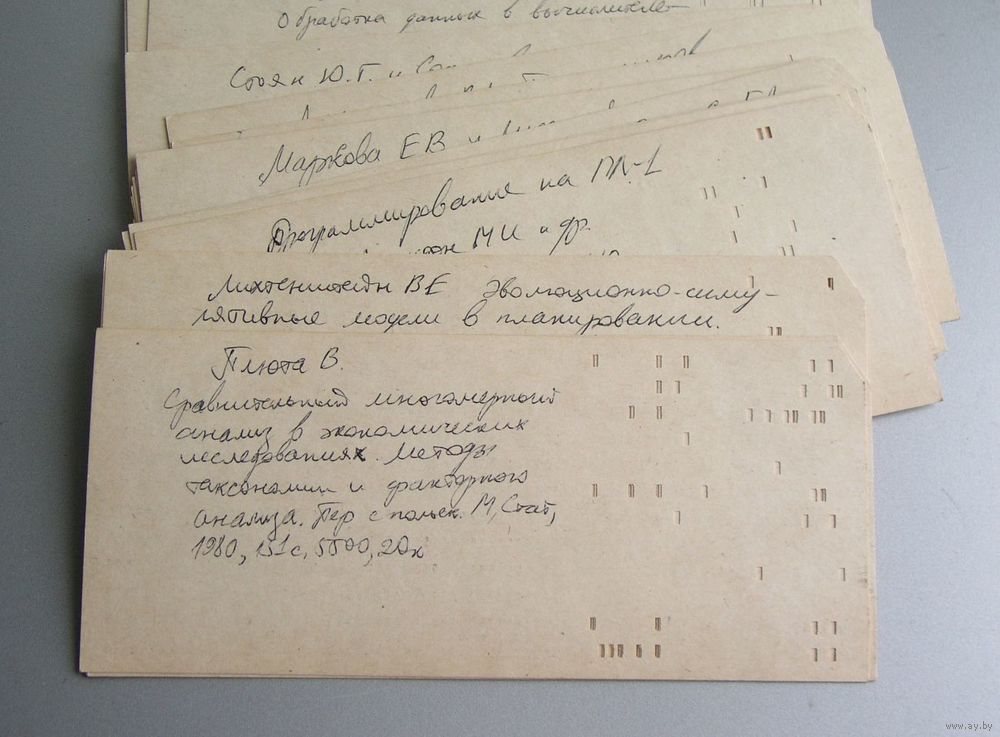 Обработка данных в вычислителе-
Стоян Ю.Г. и
Маркова Е В и
Программирование на ПЛ-1
МИ и др.
Лихтенштейн В Е Эволюционно-симу-
лятивные модели в планировании.
Плюта В.
Сравнительный многомерный
анализ в экономических
исследованиях. Методы
таксономии и факторного
анализа. Пер с польск. М, Стат,
1980, 151 с, 5500, 20к
www.ay.by